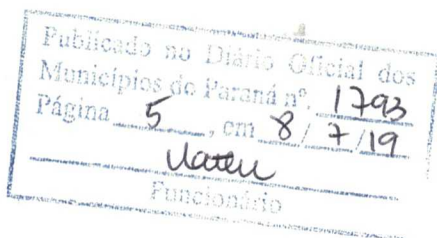 Publicado no Diário Oficial dos
Municípios do Paraná nº. 1793
Página 5, em 8/7/19
Funcionário